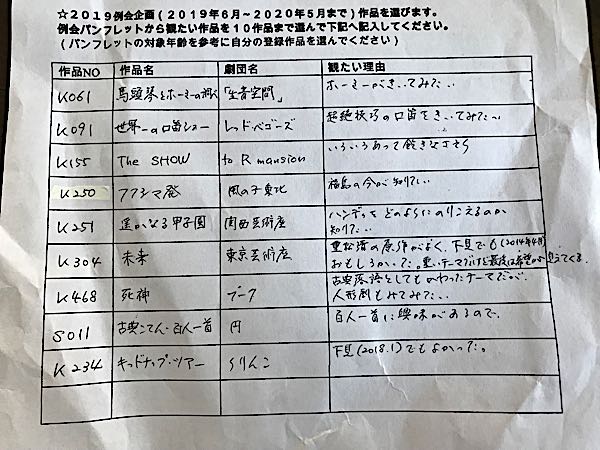 ☆2019例会企画(2019年6月~2020年5月まで)作品を選びます。
例会パンフレットから観たい作品を10作品まで選んで下記へ記入してください。
(パンフレットの対象年齢を参考に自分の登録作品を選んでください)
作品NO 作品名 劇団名 観たい理由
K061 馬頭琴とホーミーの 「生音空間」 ホーミーがきいてみたい
K091 世界一の口笛ショー レッド・ベコーズ 超絶技巧の口笛をきいてみたい
K155 The SHOW to R mansion いろいろあって飽きなさそう
K250 フクシマ発 風の子東北 福島の今が知りたい
K251 遥かなる甲子園 関西芸術座 ハンディをどのようにのりこえるのか
知りたい
K304 未来 東京芸術座 重松清の原作がよく、下見でも(2014年4月)
おもしろかった。重いテーマだけど最後は希望が見えてくる
K468 死神 プーク 古典落語としてもかわったテーマだが、
人形劇もみてみたい
S011 古典こてん・百人一首 円 百人一首に興味があるので、
K234 キッドナップ・ツアー うりんこ 下見(2018.1)でもよかった。